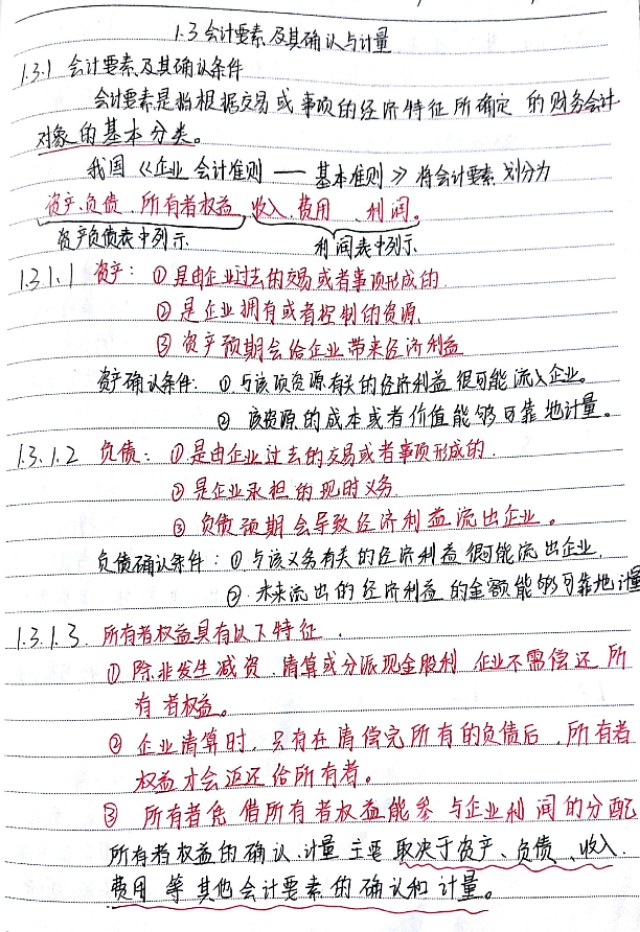 1.3 会计要素及其确认与计量
1.3.1 会计要素及其确认条件
会计要素是指根据交易或事项的经济特征所确定的财务会计
对象的基本分类。
我国《企业会计准则——基本准则》将会计要素划分为
资产、负债、所有者权益、收入、费用、利润。
资产负债表中列示 利润表中列示
1.3.1.1 资产：①是由企业过去的交易或者事项形成的
②是企业拥有或者控制的资源
③资产预期会给企业带来经济利益
资产确认条件：①与该项资源有关的经济利益很可能流入企业。
②该资源的成本或者价值能够可靠地计量。
1.3.1.2 负债：①是由企业过去的交易或者事项形成的.
②是企业承担的现时义务
③负债预期会导致经济利益流出企业。
负债确认条件：①与该义务有关的经济利益很可能流出企业.
②.未来流出的经济利益的金额能够可靠地计量
1.3.1.3.所有者权益具有以下特征.
①除非发生减资、清算或分派现金股利 企业不需偿还所
有者权益。
②企业清算时，只有在清偿完所有的负债后，所有者
权益才会返还给所有者。
③所有者凭借所有者权益能参与企业利润的分配
所有者权益的确认、计量主要取决于资产、负债、收入、
费用等其他会计要素的确认和计量。